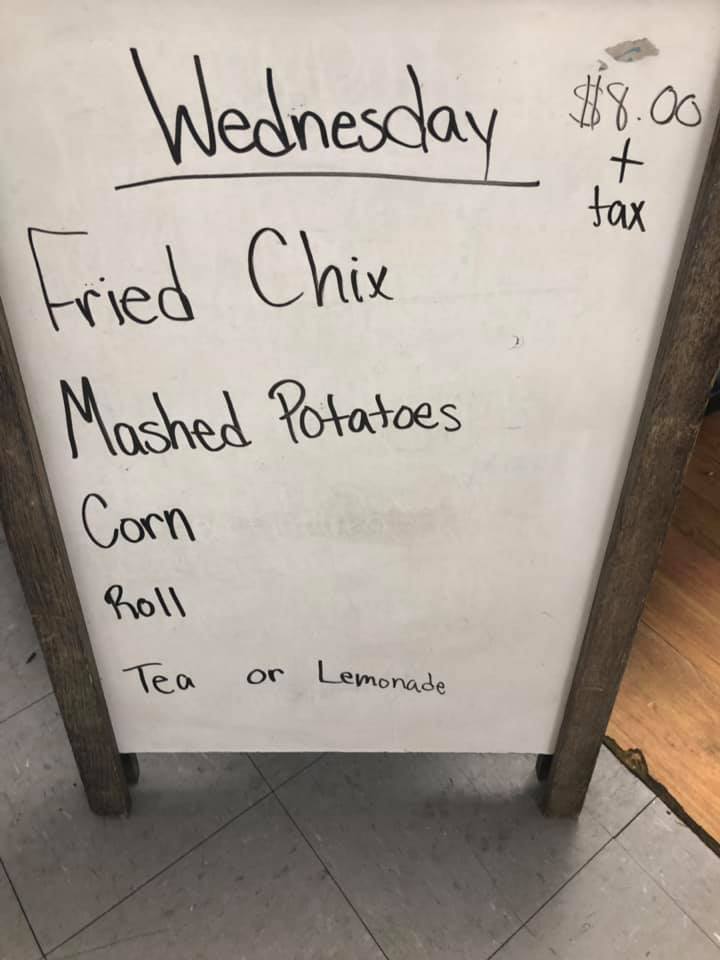 Wednesday
$8.00
+
tax
Fried Chix
Mashed Potatoes
Corn
Roll
Tea or Lemonade